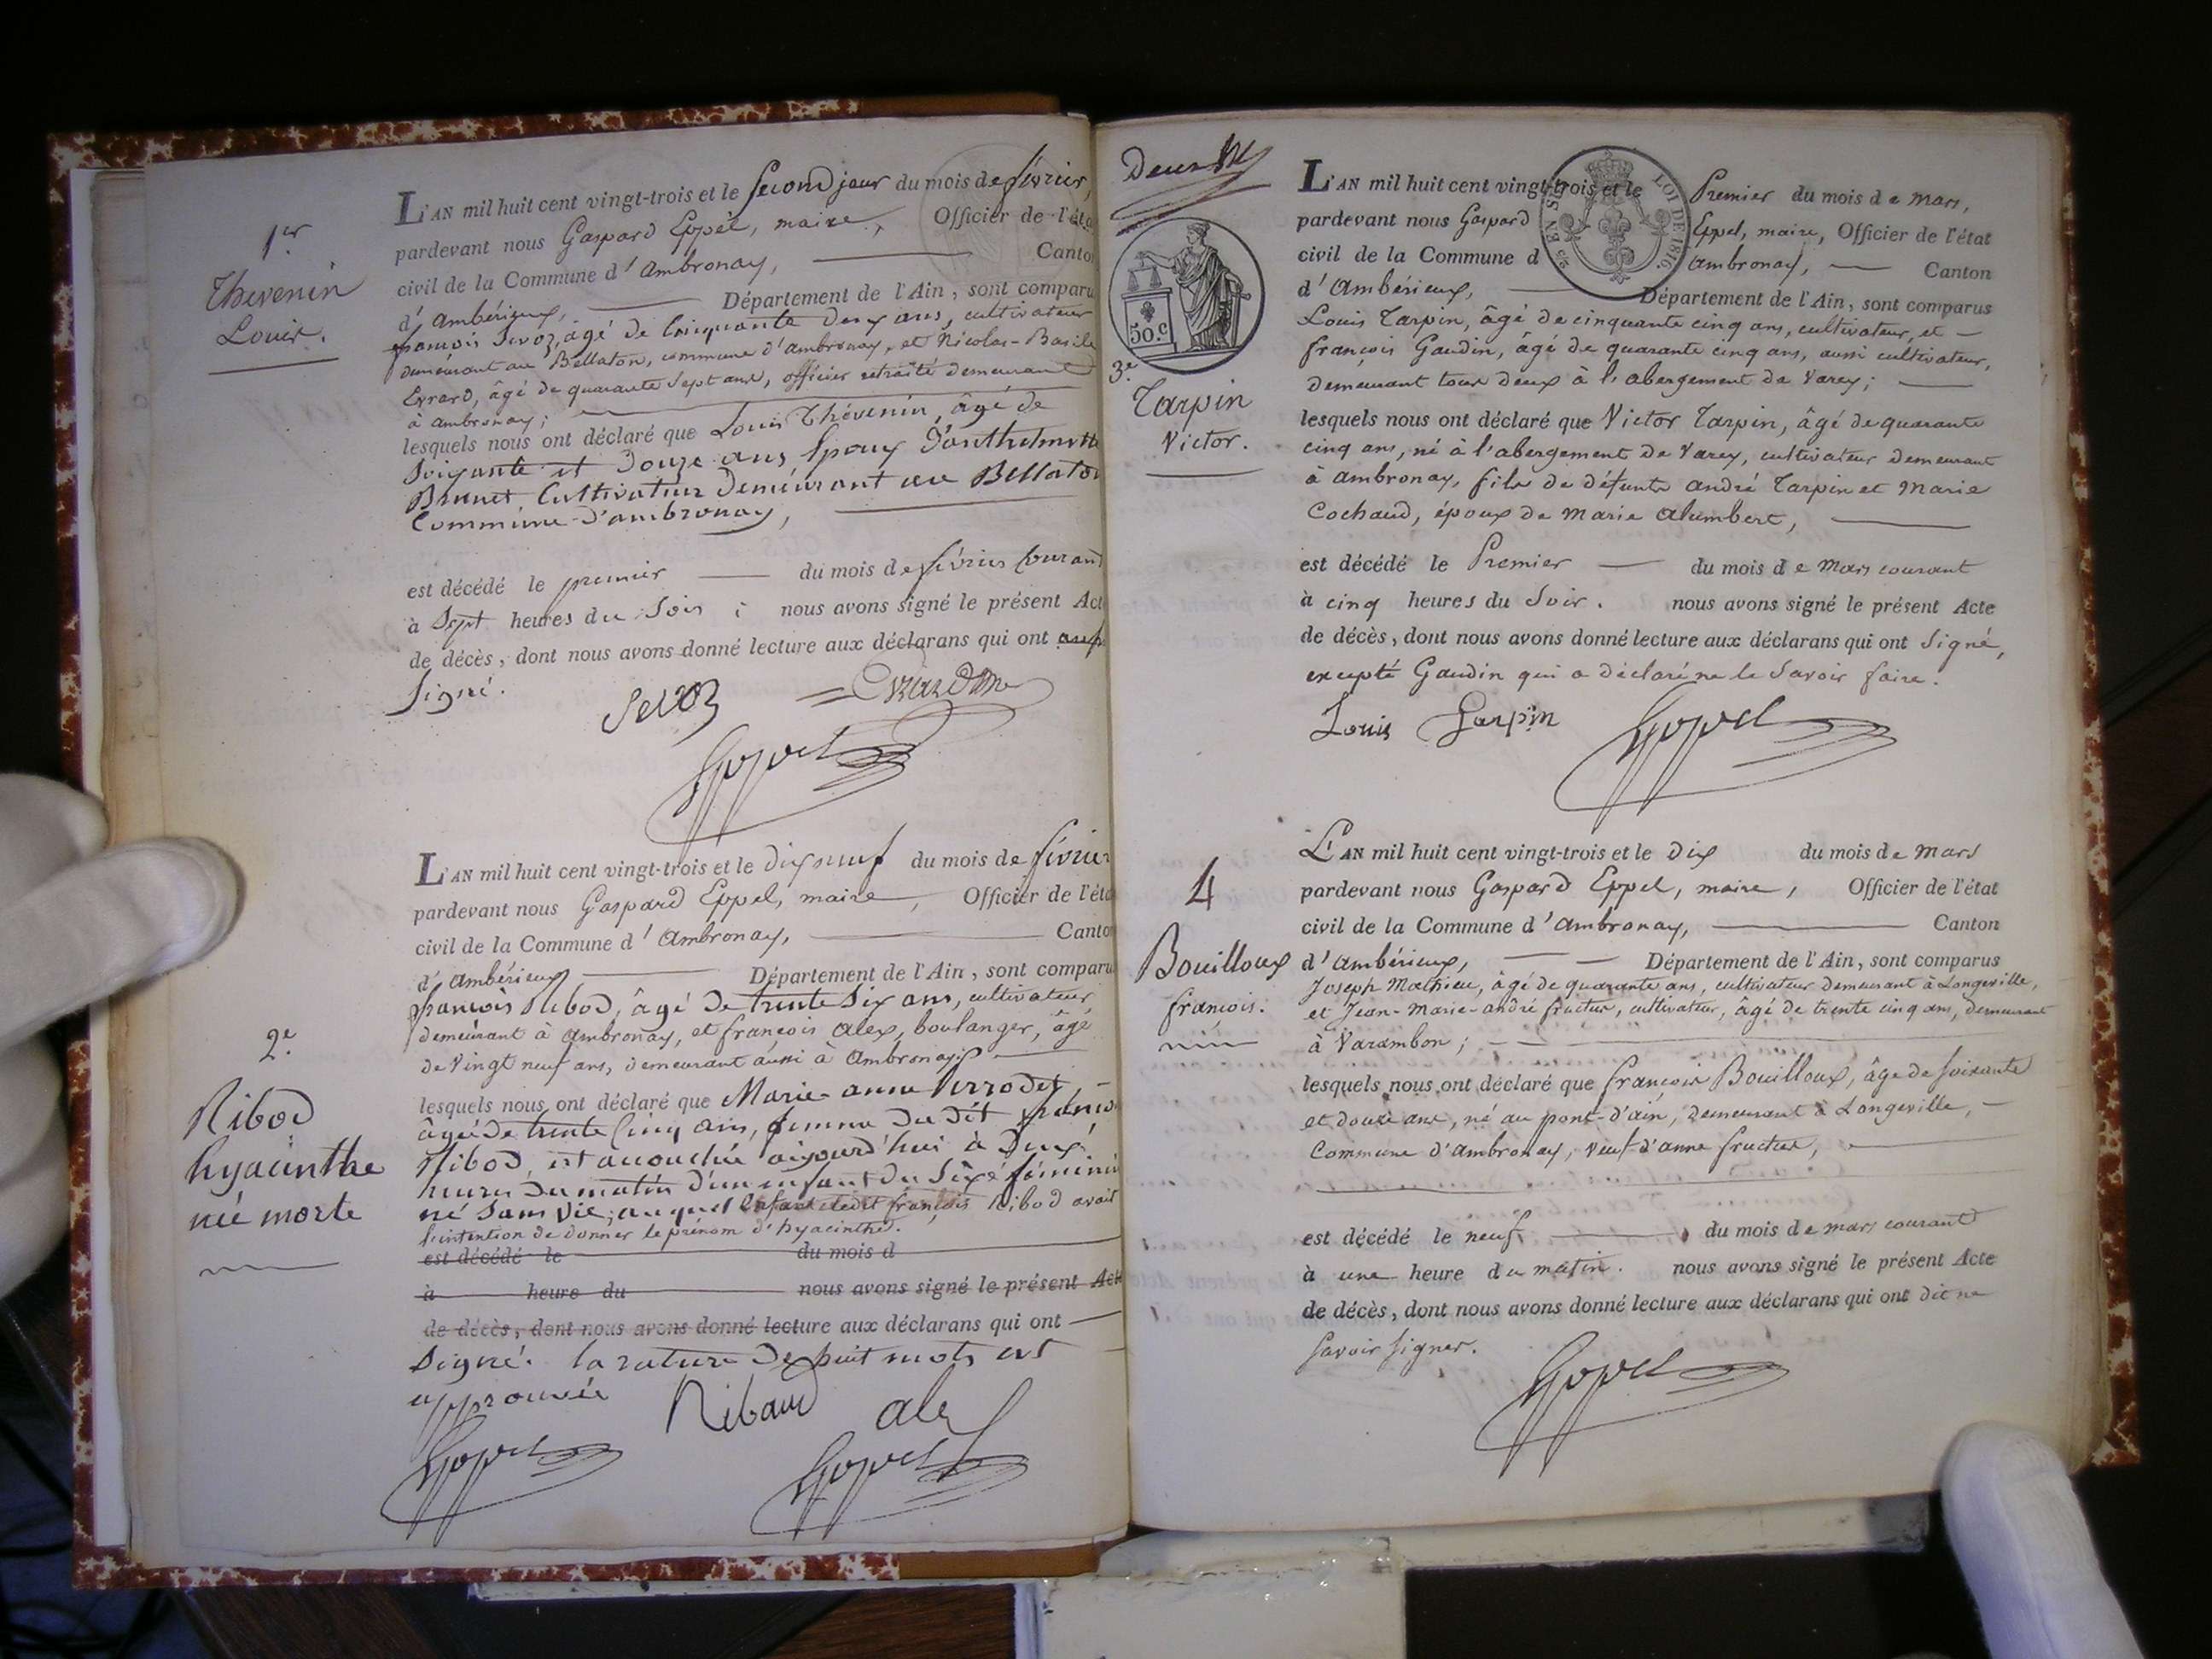 1er
Thevenin
Louis.
L'AN mil huit cent vingt-trois et le second jour du mois de février,
pardevant nous Gaspard Eppel, maire, Officier de l'éta
civil de la Commune d'Ambronay, Canto
d'ambérieux, Département de l'Ain, sont comparu
françois Sevoz, âgé de cinquante deux ans, cultivateur
demeurant au Bellaton, commune d'ambronay, et Nicolas-Basile
Evrard, âgé de quarante sept ans, officier retraité demeurant
à ambronay;
lesquels nous ont déclaré que Louis Thévenin, âgé de
soixante et douze ans Epoux d'anthelmette
Brunet Cultivateur demeurant au Bellaton
Commune d'ambronay,
est décédé le premier du mois de février Courant
à Sept heures du Soir; nous avons signé le présent Act
de décès, dont nous avons donné lecture aux déclarans qui ont
signé.
Sevoz
Eppel
2e
Ribod
hyacinthe
née morte
L'AN mil huit cent vingt-trois et le dix neuf du mois de févrie
pardevant nous Gaspard Eppel, maire, Officier de l'éta
civil de la Commune d'Ambronay, Canto
d'Ambérieux Département de l'Ain, sont comparu
françois Ribod, âgé de trente six ans, cultivateur
demeurant à Ambronay, et françois Alex, boulanger, âgé
de vingt neuf ans, demeurant aussi à Ambronay;
lesquels nous ont déclaré que Marie-anne
âgée de trente Cinq ans, femme du dit franço
Ribod, est accouchée aujourd'hui à deux
heures du matin d'un enfant du Sexe féminin
né Sans Vie; auquel Enfant ledit françois Ribod avait
l'intention de donner le prénom d'hyacinthe.
est décédé le du mois d
à heure du nous avons signé le présent Acte
de décès, dont nous avons donné lecture aux déclarans qui ont
Signé. la rature de huit mots est
approuvée Ribaud alex
Eppel Eppel
LOI DE 1816
50.c
3e
Tarpin
Victor.
L'AN mil huit cent vingt-trois et le Premier du mois de mars,
pardevant nous Gaspard Eppel, maire, Officier de l'état
civil de la Commune d Ambronay, Canton
d'Ambérieux, Département de l'Ain, sont comparus
Louis Tarpin, âgé de cinquante cinq ans, cultivateur, et
françois Gaudin, âgé de quarante cinq ans, aussi cultivateur,
demeurant tous deux à l'abergement de Varey;
lesquels nous ont déclaré que Victor Tarpin, âgé de quarante
cinq ans, né à l'abergement de Varey, cultivateur demeurant
à ambronay, fils de défunts andré Tarpin et Marie
Cochaud, époux de Marie Alumbert,
est décédé le Premier du mois de Mars courant
à cinq heures du Soir. nous avons signé le présent Acte
de décès, dont nous avons donné lecture aux déclarans qui ont Signé,
excepté Gaudin qui a déclaré ne le Savoir faire.
Louis Tarpin Eppel
4
Bouilloux
françois.
L'AN mil huit cent vingt-trois et le dix du mois de mars
pardevant nous Gaspard Eppel, maire, Officier de l'état
civil de la Commune d'Ambronay, Canton
d'Ambérieux, Département de l'Ain, sont comparus
Joseph Mathieu, âgé de quarante ans, cultivateur demeurant à Longeville,
et Jean-Marie-andré fructus, cultivateur, âgé de trente cinq ans, demeurant
à Varambon;
lesquels nous ont déclaré que françois Bouilloux, âgé de soixante
et douze ans, né au pont-d'ain, demeurant à Longeville,
Commune d'Ambronay, veuf d'anne fructus,
est décédé le neuf du mois de mars courant
à une heure du matin. nous avons signé le présent Acte
de décès, dont nous avons donné lecture aux déclarans qui ont dit ne
savoir signer.
Eppel